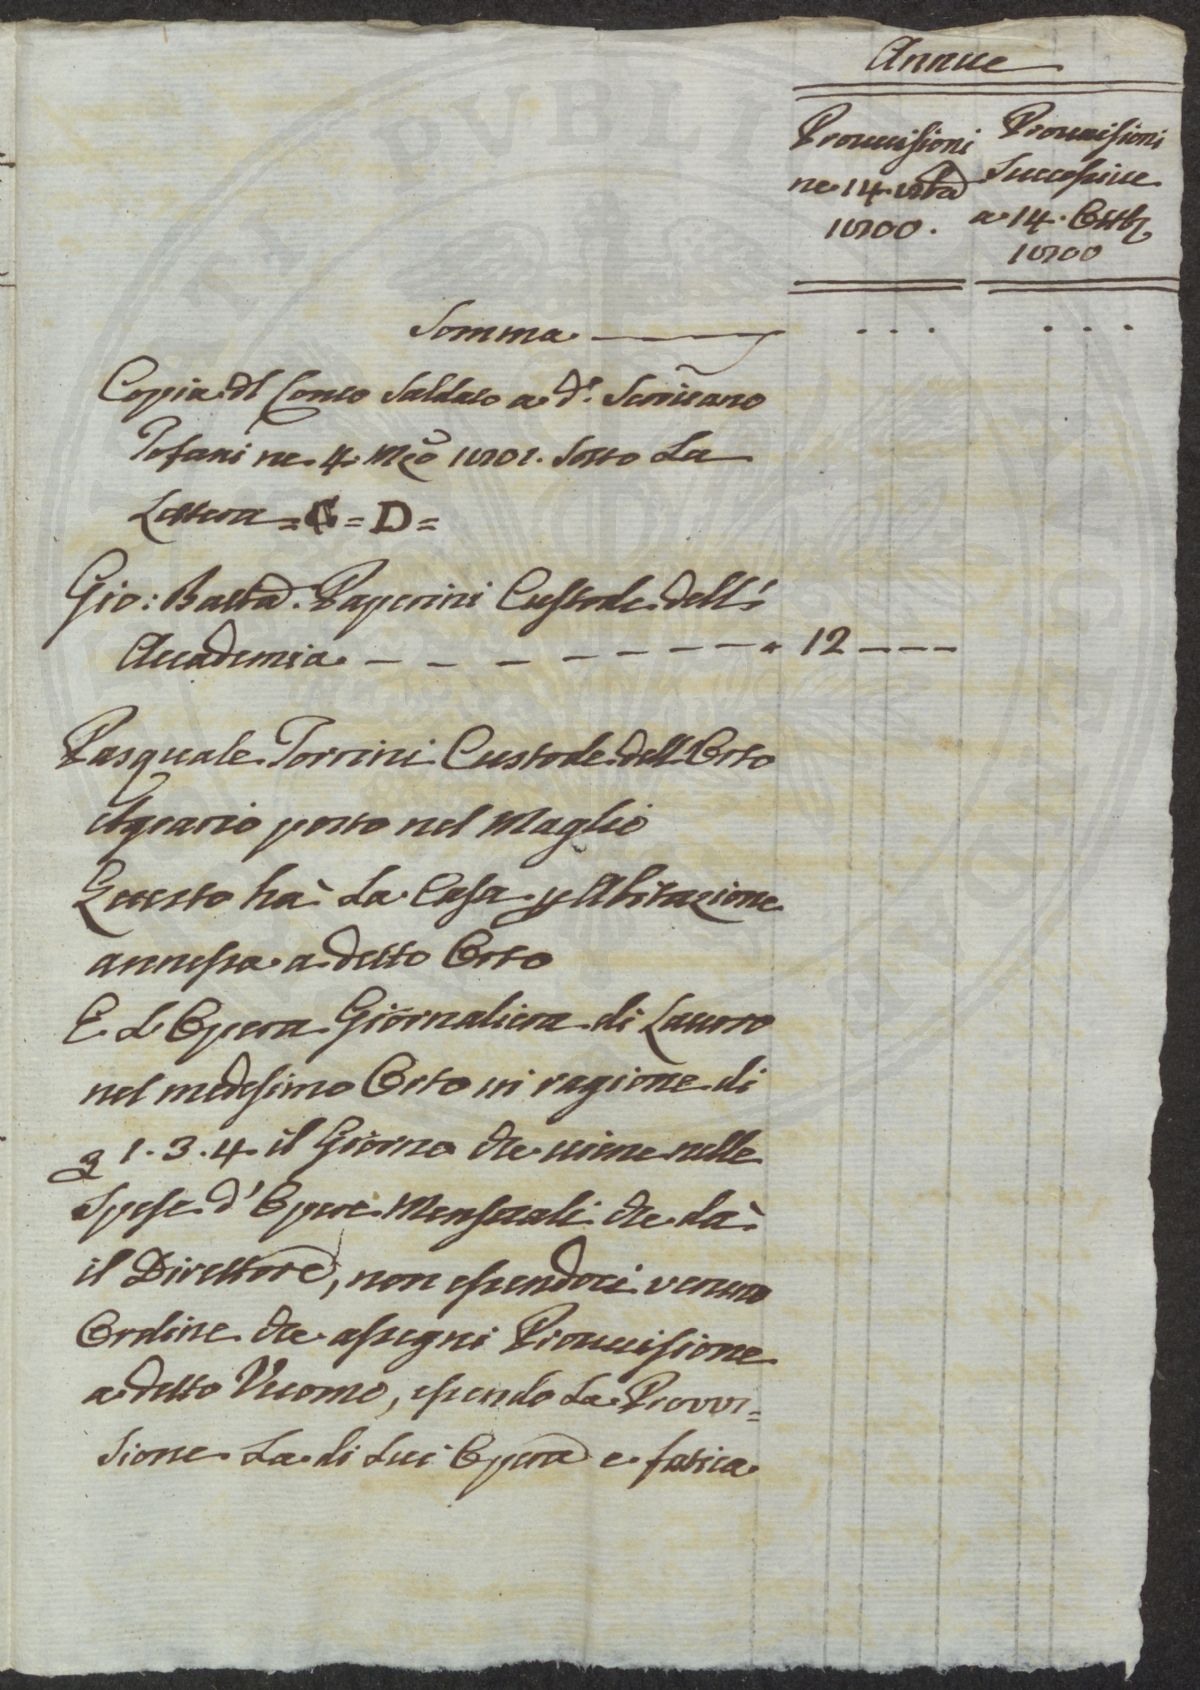 Annue
Provvisioni
ne 14. 8bre
1800.
Provvisioni
Successive
a 14. Ottb.
1800
Somma
Copia del Conto Saldato a d.o Scrivano
Tofani ne 4. Mzo 1801. Sotto La
Lettera = C = D =
Gio: Batta. Paperini Custode dell'
Accademia - - - - - - - - - " 12 - - -
Pasquale Torrini Custode dell'Orto
Agrario posto nel Maglio
Questo hà La Casa p Abitazione
annessa a detto Orto
E L'Opera Giornaliera di Lavoro
nel medesimo Orto in ragione di
1.3.4 il Giorno che viene nelle
Spese d'Opere Mensuali che dà
il Direttore, non essendoci veruno
Ordine che assegni Provvisione
a detto Uuomo, essendo La Provvi=
sione La di Lui Opera e fatica